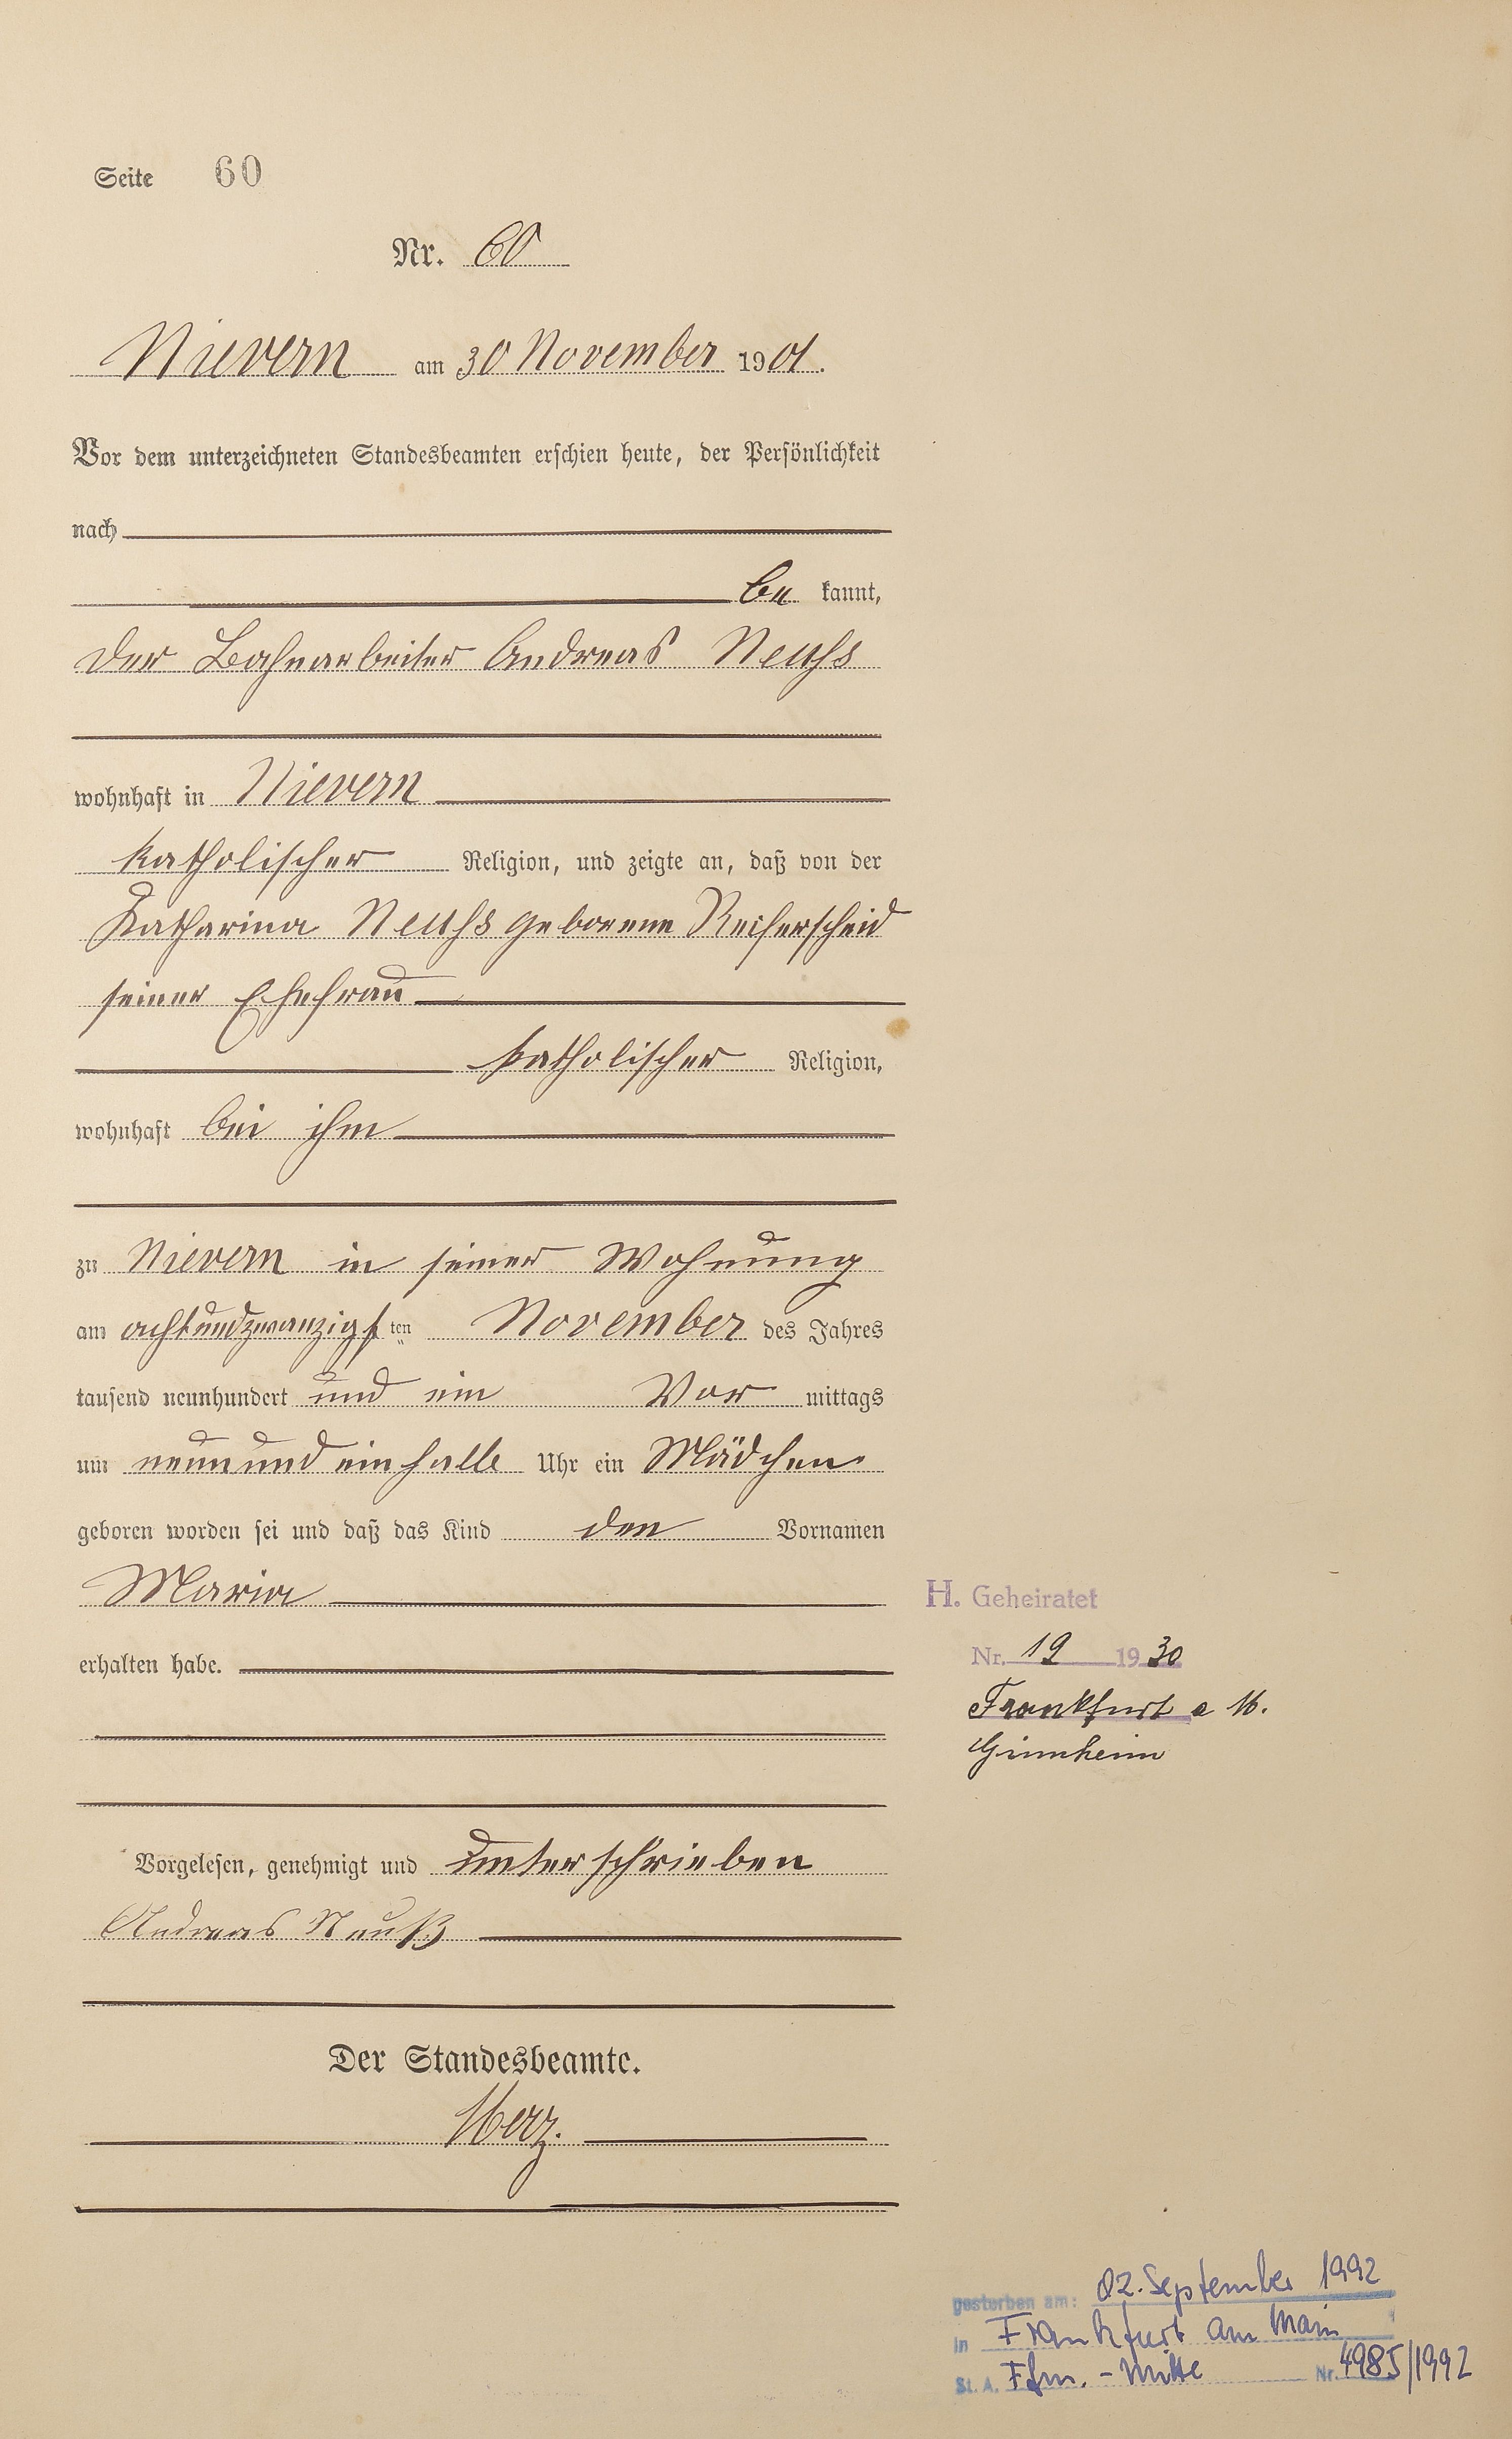 Seite 60
Nr. 60
Nievern am 30 November 1901.
Vor dem unterzeichneten Standesbeamten erschien heute, der Persönlichkeit
nach
be kannt,
der Bahnarbeiter Andreas Neuhs
wohnhaft in Nievern
katholischer Religion, und zeigte an, daß von der
Katharina Neuhs geborene Reiferscheid
seiner Ehefrau
katholischer Religion,
wohnhaft bei ihm
zu Nievern in seiner Wohnung
am achtundzwanzigsten November des Jahres
tausend neunhundert und ein Vor mittags
um neunundeinhalb Uhr ein Mädchen
geboren worden sei und daß das Kind den Vornamen
Maria
erhalten habe.
H. Geheiratet
Nr. 19 1930
Frankfurt a M.
Ginnheim
Vorgelesen, genehmigt und unterschrieben
Andreas Neuß
Der Standesbeamte.
gestorben am: 02. September 1992
in Frankfurt am Main
St. A. Ffm. - Mitte Nr. 4985/1992